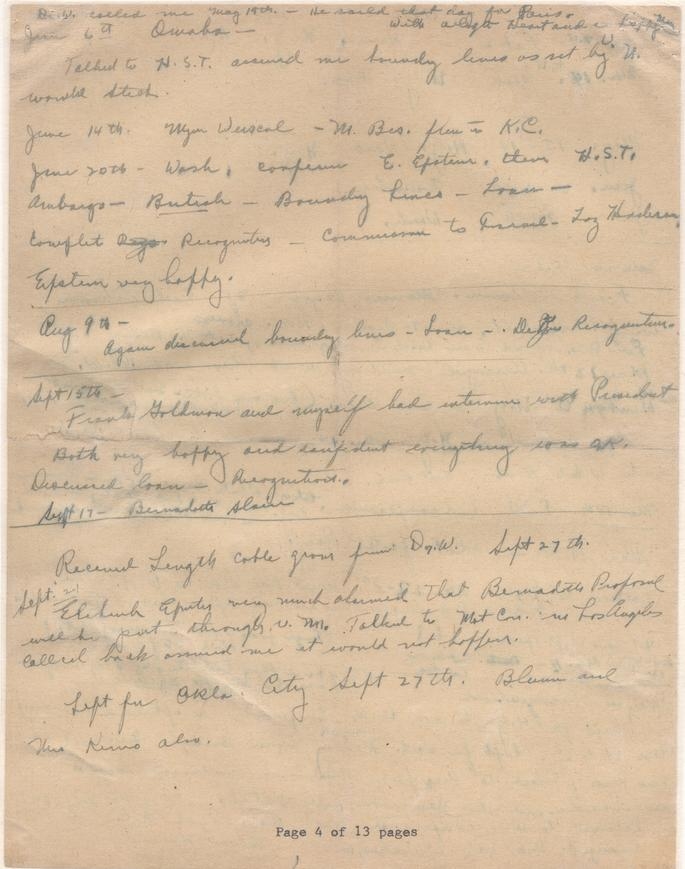 Dr. W. called me May 18th - He sailed that day for Paris.
With a light Heart and a happy Man
June 6th Omaha -
Talked to H.S.T. assured me boundry lines as set by U. N.
would stick.
June 14th. - M. Bis. flew to K.C.
June 20th - Wash. conference E. Epstein. then H.S.T.
Ambargo - British - Boundry Lines - Loan -
Complet Recognition - Commission to Israel - Loy Henderson,
Epstein very happy.
Aug 9th -
Again discussed boundry lines - Loan - Recognition.
Sept 15th -
Frank Goldman and myself had interview with President
Both very happy and confident everything was OK.
Discussed loan - Recognition.
Sept 17 - Bernadotte Slain
Received Length cable from Dr. W. Sept 27th.
Sept.
very much alarmed that Bernadotte Proposal
will be put through U. N. Talked to in Los Angeles
Called back assured me it would not happen.
Left for Okla. City Sept 27th. and
also.
Page 4 of 13 pages